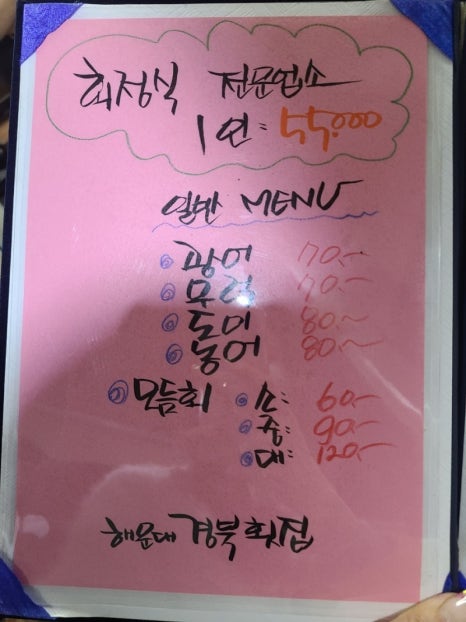 회정식 전문업소
1인: 55,000
일반 MENU
광어 70.-
우럭 70.-
도미 80.~
농어 80.~
모듬회 소: 60.-
중: 90.-
대: 120.-
해운대 경북횟집